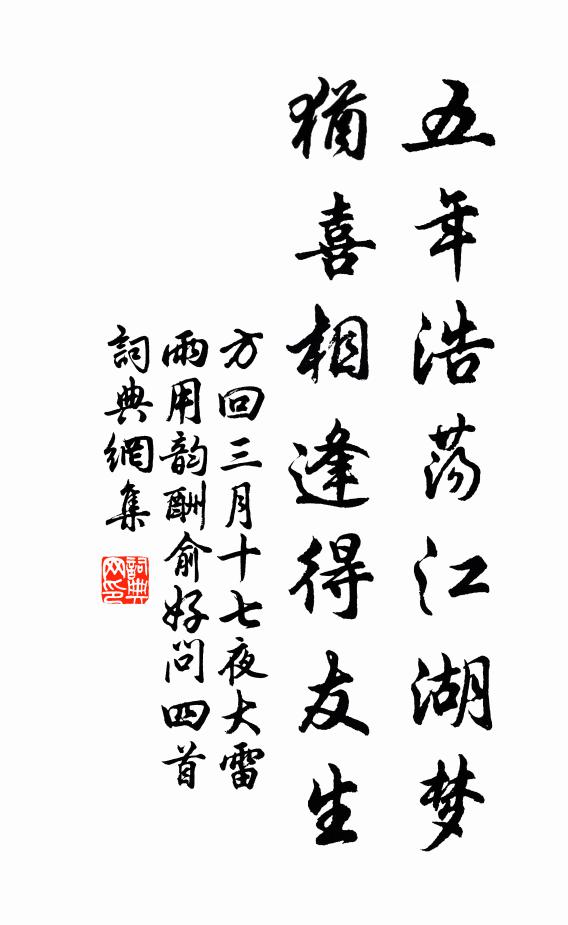 五年浩荡江湖梦
猶喜相逢得友生
方回三月十七夜大雷
雨用韵酬俞好问四首
詞典網集
詞典网印